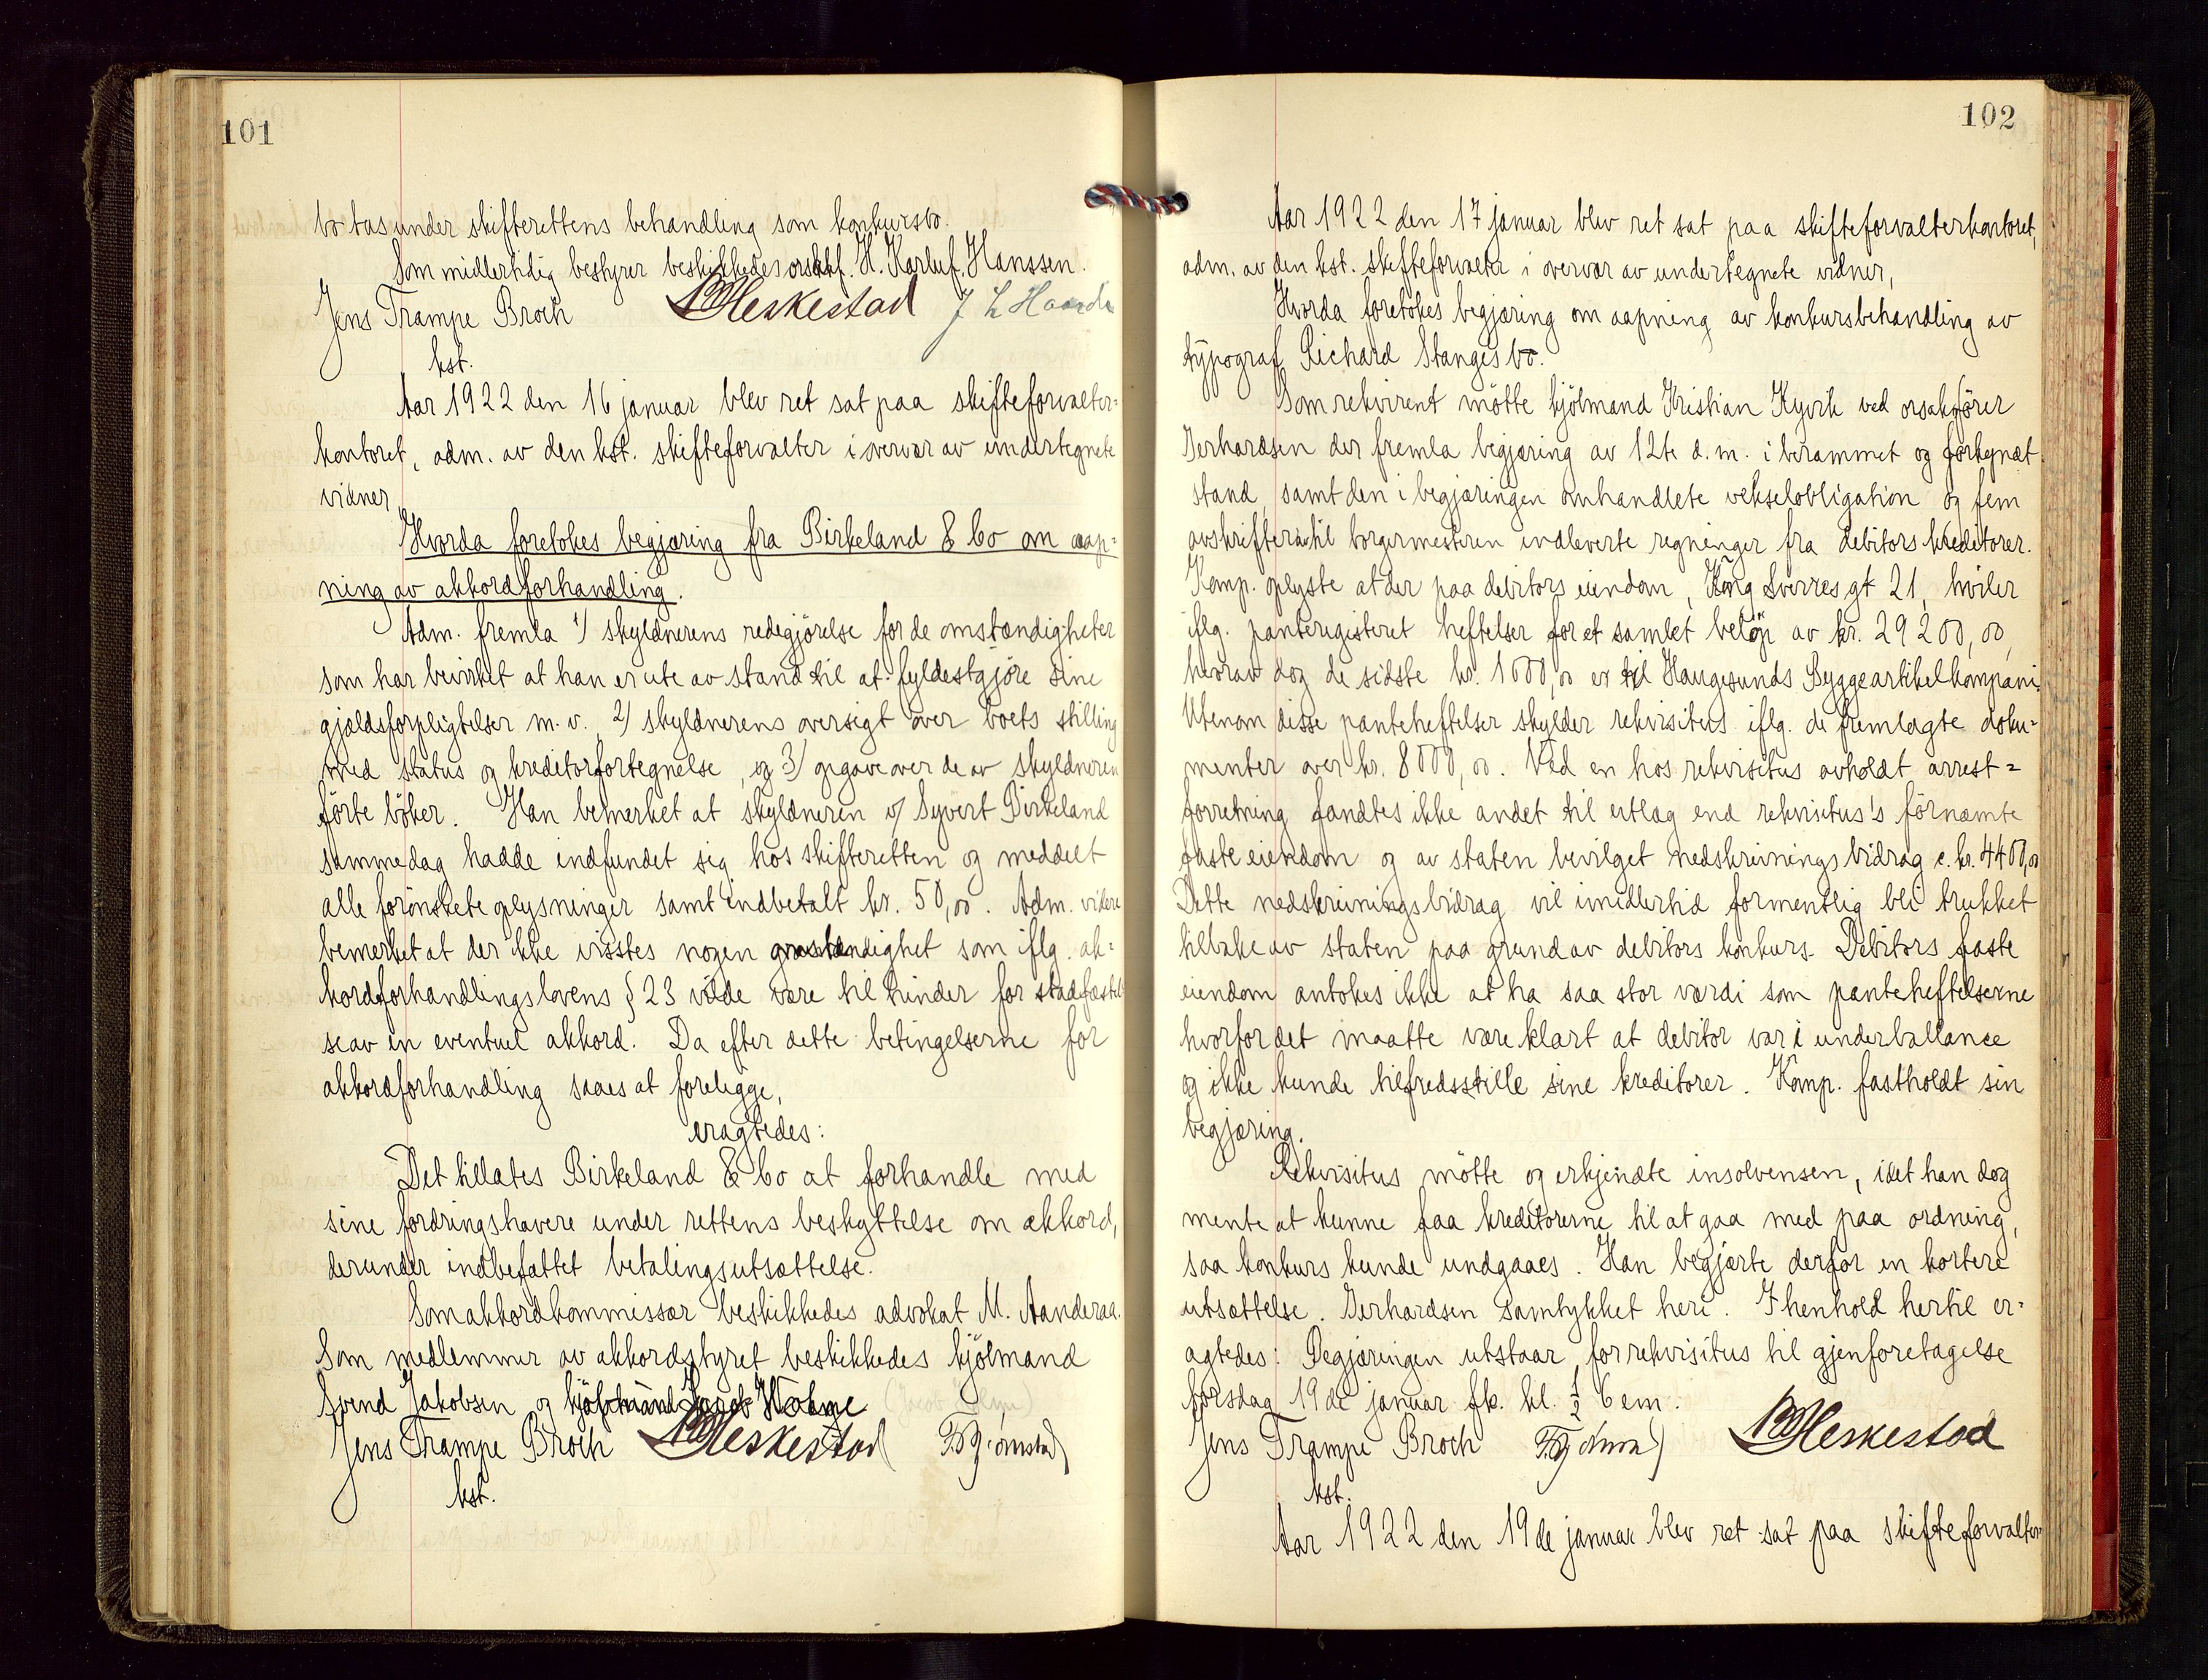 101
bo tas under skifterettens behandling som konkursbo.
Som midlertidig bestyrer beskikkedes orskf. H. Karluf Hanssen.
Jens Trampe Broch Heskestad J L Haarde
kst.
Aar 1922 den 16 januar blev ret sat paa skifteforvalter-
kontoret, adm. av den kst. skifteforvalter i overvær av undertegnete
vidner,
Hvorda foretokes begjæring fra Birkeland & Co om aap-
ning av akkordforhandling.
Adm. fremla 1/ skyldnerens redegjörelse for de omstændigheter
som har bevirket at han er ute av stand til at fyldestgjöre sine
gjældsforpligtelser m.v. 2/ skyldnerens oversigt over boets stilling
med status og kreditorfortegnelse, og 3/ opgave over de av skyldneren
förte böker. Han bemerket at skyldneren v/ Syvert Birkeland
sammedag hadde indfundet sig hos skifteretten og meddelt
alle forönskete oplysninger samt indbetalt kr. 50,00. Adm. videre
bemerket at der ikke visstes nogen omstændighet som iflg. ak-
kordforhandlingslovens § 23 vilde være til hinder for stadfæstel-
se av en eventuel akkord. Da efter dette betingelserne for
akkordforhandling saaes at foreligge,
eragtedes:
Det tillates Birkeland & Co at forhandle med
sine fordringshavere under rettens beskyttelse om akkord,
derunder indbefattet betalingsutsættelse.
Som akkordkommissær beskikkedes advokat M. Aanderaa.
Som medlemmer av akkordstyret beskikkedes kjölmand
Svend Jakobsen og kjöbmand Jacob Holme
Jens Trampe Broch Heskestad
kst.
102
Aar 1922 den 17 januar blev ret sat paa skifteforvalterkontoret,
adm. av den kst. skifteforvalter i overvær av undertegnete vidner,
Hvorda foretokes begjæring om aapning av konkursbehandling av
typograf Richard Stanges bo.
Som rekvirent mötte kjölmand Kristian Kyvik ved orsakförer
Gerhardsen der fremla begjæring av 12te d.m. i berammet og forkyndt
stand, samt den i begjæringen omhandlete vekselobligation og fem
avskrifter av til borgermesteren indleverte regninger fra debitors kreditorer.
Komp. oplyste at der paa debitors eiendom, Kong Sverres gt 21, hviler
iflg. panteregisteret heftelser for et samlet belöp av kr. 29200,00,
hvorav dog de sidste kr. 1000,00 er til Haugesunds Byggeartikelkompani.
Utenom disse panteheftelser skylder rekvisitus iflg. de fremlagte doku-
menter over kr. 8000,00. Ved en hos rekvisitus avholdt arrest-
forretning fandtes ikke andet til utlæg end rekvisitus's förnæmte
faste eiendom og av staten bevilget nedskrivningsbidrag c. kr. 4400,00
Dette nedskrivningsbidrag vil imidlertid formentlig bli trukket
tilbake av staten paa grund av debitors konkurs. Debitors faste
eiendom antokes ikke at ha saa stor værdi som panteheftelserne
hvorfor det maatte være klart at debitor var i underballance
og ikke kunde tilfredsstille sine kreditorer. Komp. fastholdt sin
begjæring.
Rekvisitus mötte og erkjendte insolvensen, idet han dog
mente at kunne faa kreditorerne til at gaa med paa ordning,
saa konkurs kunde undgaaes. Han begjærte derfor en kortere
utsættelse. Gerhardsen samtykket heri. I henhold hertil er-
agtedes: Begjæringen utstaar for rekvisitus til gjenforetagelse
torsdag 19de januar fk. kl. ½ 6 em.
Jens Trampe Broch Heskestad
kst.
Aar 1922 den 19de januar blev ret sat paa skifteforvalter-